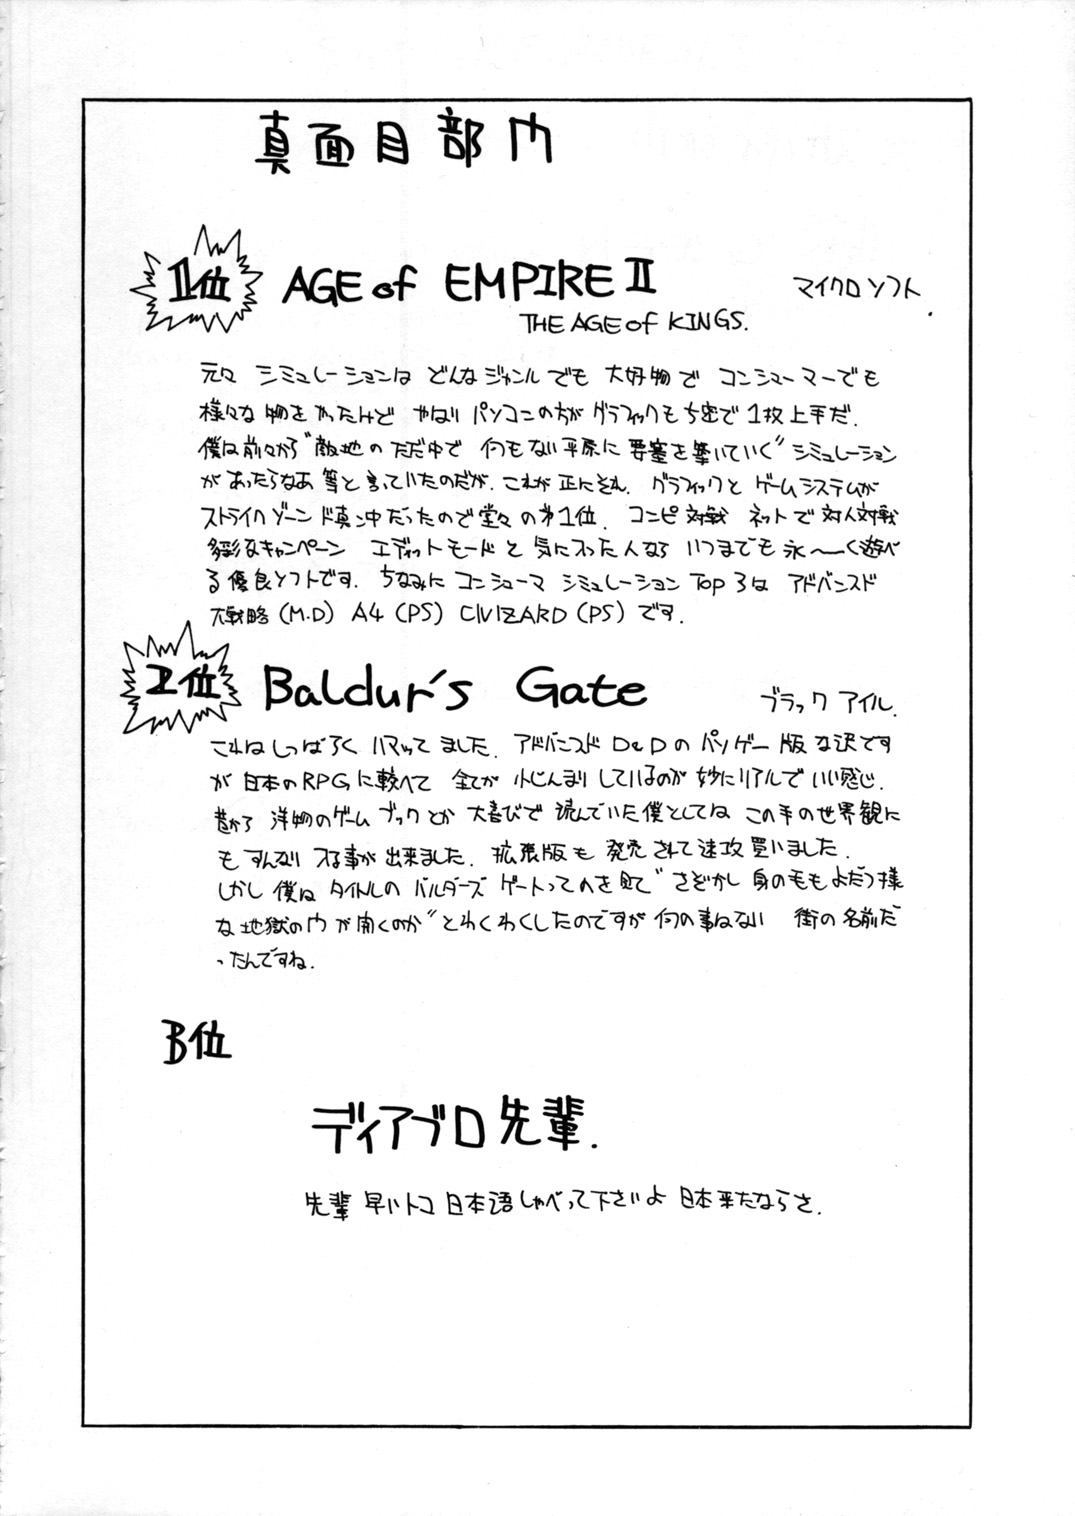 真面目部門
1位 AGE of EMPIRE II マイクロソフト.
THE AGE of KINGS.
元々 シミュレーションは どんなジャンルでも 大好物で コンシューマーでも
様々な物をやったけど やはり パソコンの方が グラフィックもち密で 1枚上手だ.
僕は前々から"敵地のただ中で 何もない平原に 要塞を築いていく"シミュレーション
があったらなあ 等と言っていたのだが. これが正にそれ. グラフィックと ゲームシステムが
ストライクゾーン ド真ン中だったので堂々の第1位. コンピ対戦 ネットで対人対戦
多彩なキャンペーン エディットモードと 気に入った人なら いつまでも永〜く遊べ
る優良ソフトです. ちなみに コンシューマ シミュレーション Top 3は アドバンスド
大戦略(M.D) A4(PS) CIVIZARD(PS)です.
2位 Baldur's Gate ブラックアイル.
これはしっばらく ハマッてました. アドバンスド D&Dの パソゲー版な訳です
が 日本のRPGに較べて 全てが こじんまりしているのが 妙にリアルで いい感じ.
昔から 洋物のゲームブックとか 大喜びで 読んでいた僕としては この手の世界観に
もすんなり入る事が出来ました. 拡張版も 発売されて速攻買いました.
しかし 僕は タイトルの バルダーズ ゲートってのを見て"さぞかし 身の毛もよだつ様
な 地獄の門が開くのか"とわくわくしたのですが 何の事はない 街の名前だ
ったんですね.
B位
ディアブロ先輩.
先輩 早いトコ 日本語しゃべって下さいよ 日本来たならさ.